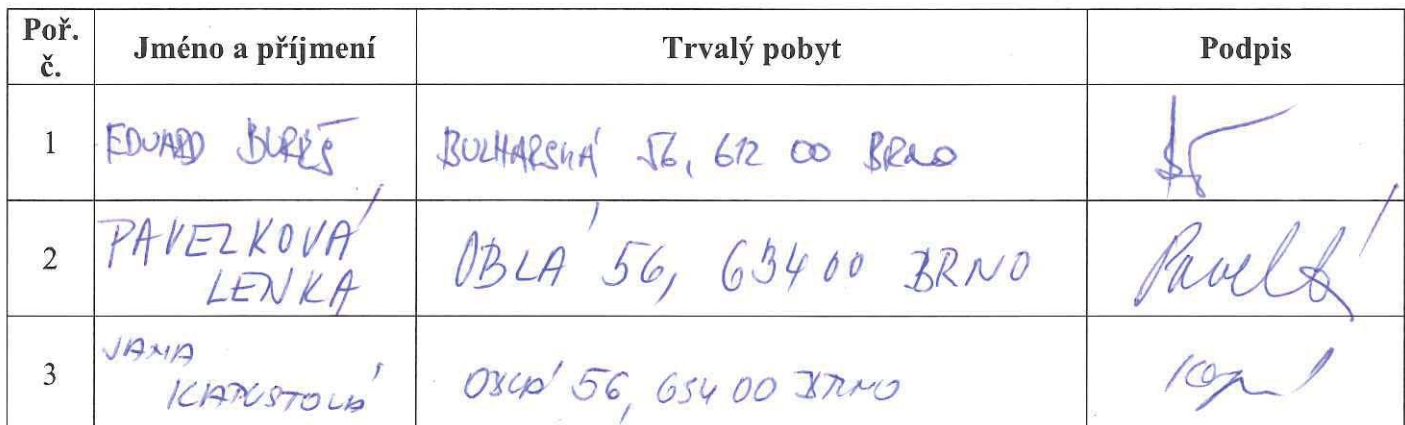 Poř. č. Jméno a příjmení Trvalý pobyt Podpis
1 EDUARD BUREŠ BULHARSKÁ 56, 612 00 BRNO
2 PAVEZKOVÁ LENKA OBLÁ 56, 634 00 BRNO
3 JANA KAPUSTOVÁ OBLÁ 56, 634 00 BRNO